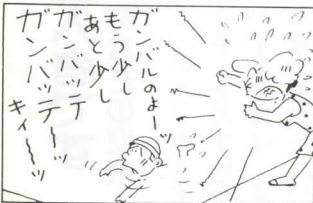 ガンバルのよーッ
もう少し
あと少し
ガンバッテ
ガンバッテーッ
キィーッ